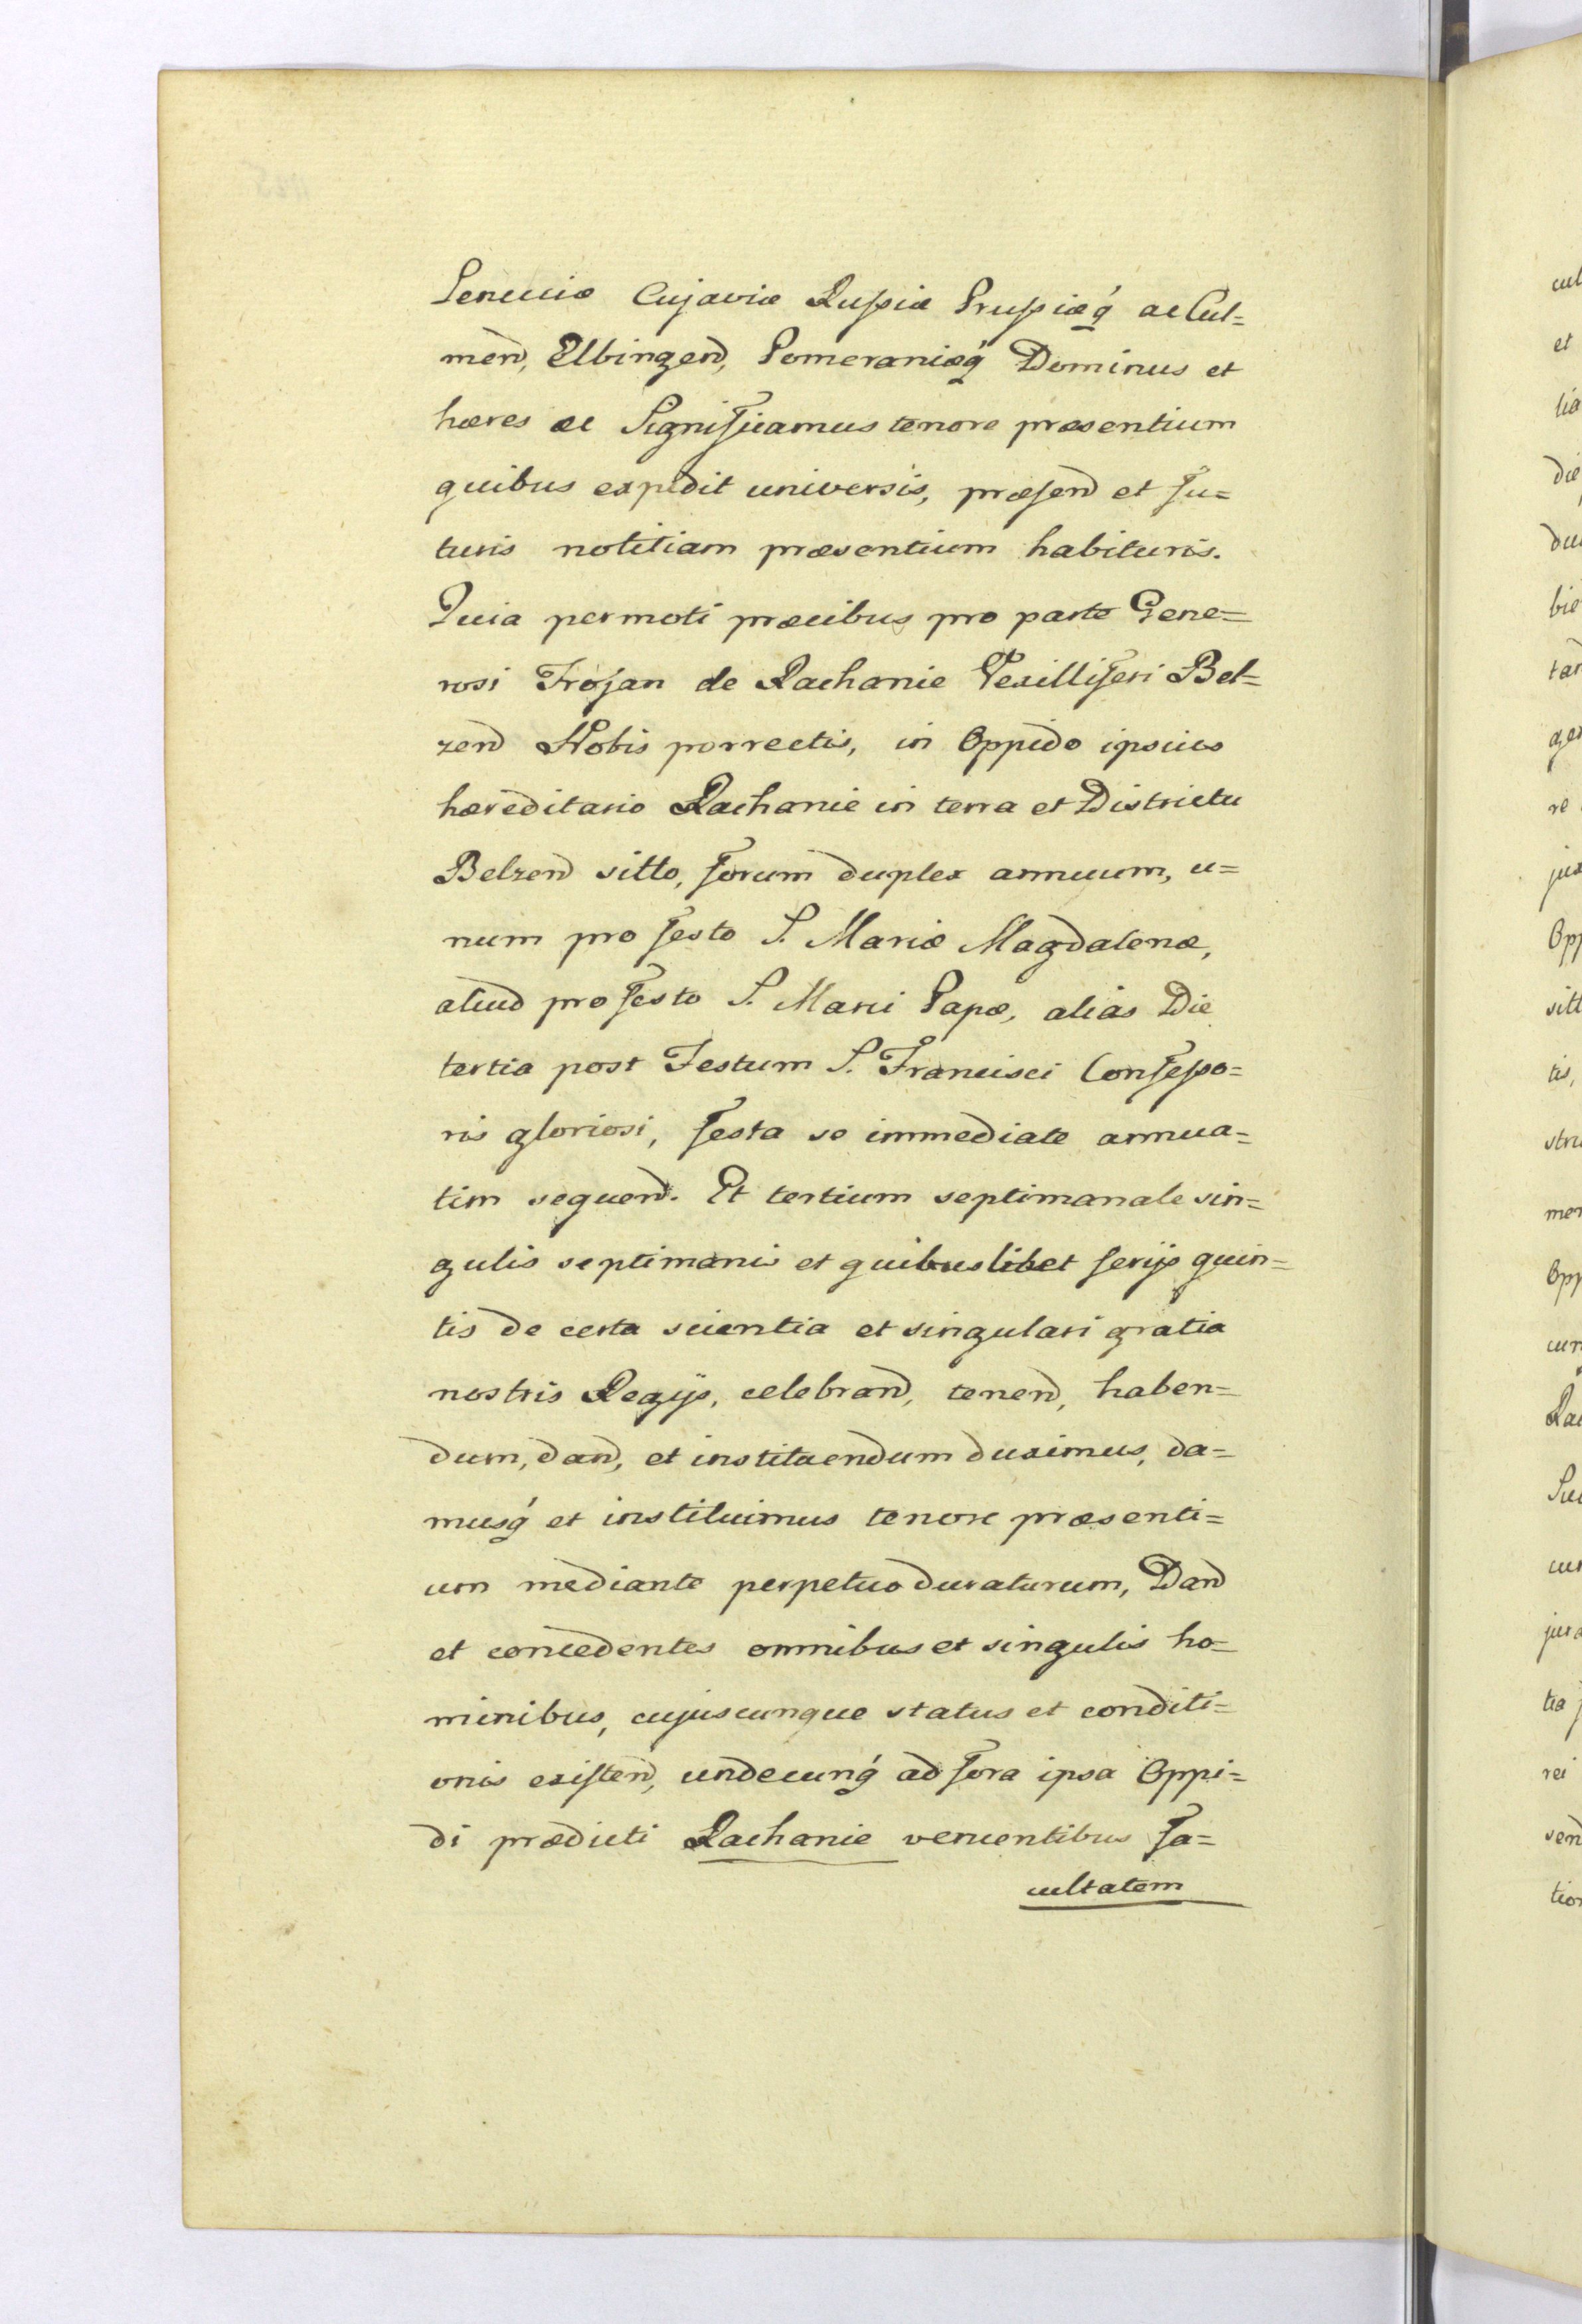 Lenciciæ Cujaviæ Russiæ Prussiæq́ ac Cul=
men̄, Elbingen̄, Pomeraniæq́ Dominus et
hæres &c Significamus tenore præsentium
quibus expedit universis, præsen̄ et fu=
turis notitiam præsentium habituris.
Quia permoti præcibus pro parte Gene=
rosi Trojan de Łachanie Vexilliferi Bel=
zen̄ Nobis porrectis, in Oppido ipsius
hæreditario Rachanie in terra et Districtu
Belzen̄ sitto, forum duplex annuum, u=
num pro festo S. Mariæ Magdalenæ,
aliud pro festo S. Marci Papæ, alias Die
tertia post Festum S. Francisci Confesso=
ris gloriosi, festa se immediate annua=
tim sequen̄. Et tertium septimanale sin=
gulis septimanis et quibuslibet ferijs quin=
tis de certa scientia et singulari gratia
nostris Regijs, celebran̄, tenen̄, haben=
dum, dan̄, et instituendum duximus, da=
musq́ et instituimus tenore præsenti=
um mediante perpetuo duraturum, Dan̄
et concedentes omnibus et singulis ho=
minibus, cujuscunque status et conditi=
onis existen̄, undecunq́ ad fora ipsa Oppi=
di prædicti Rachanie venientibus fa=
cultatem